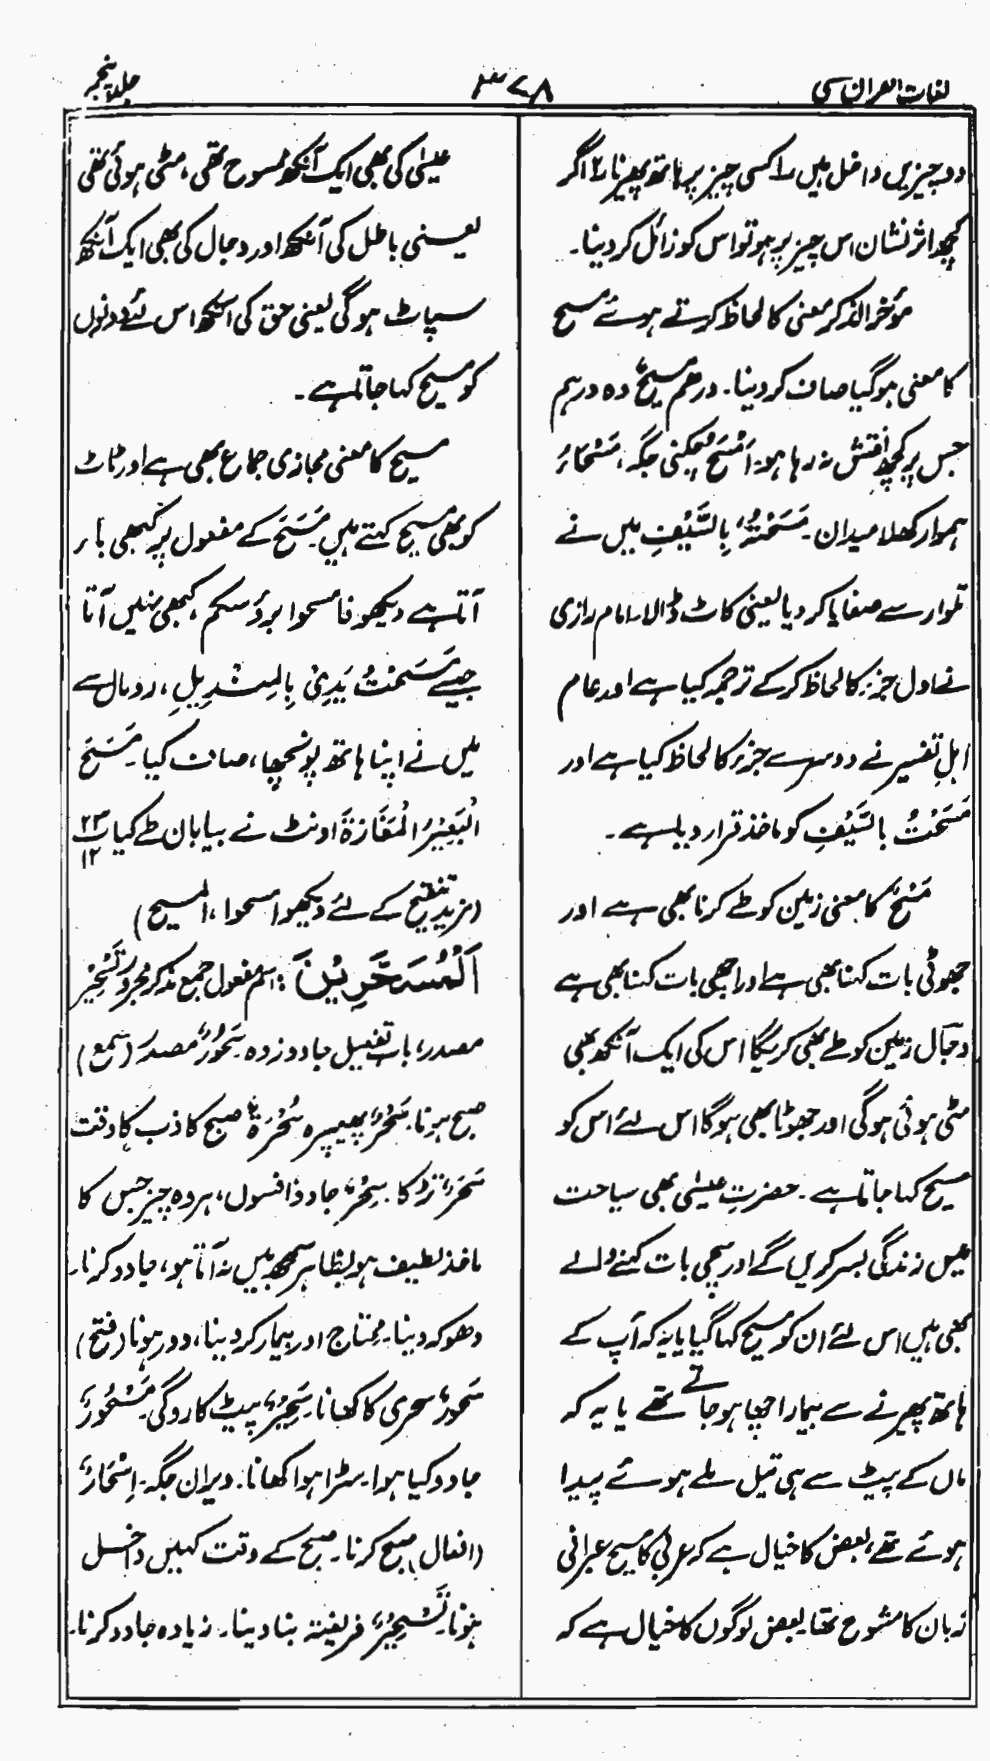 لغات القرآن سی
۳۷۸
جلد پنجم
دو چیزیں داخل ہیں ۱ کسی چیز پر ہاتھ پھیرنا ۲ اگر
کچھ اثر نشان اس چیز پر ہو تو اس کو زائل کر دینا۔
مؤخر الذکر معنی کا لحاظ کرتے ہوئے مسح
کا معنی ہو گیا صاف کر دینا۔ درھم مسیح وہ درہم
جس پر کچھ نقش نہ رہا ہو۔ اَمْسَحُ چکنی جگہ، مَسْحَاءُ
ہموار کھلا میدان۔ مَسَحْتُہٗ بِالسَّیْفِ میں نے
تلوار سے صفایا کر دیا یعنی کاٹ ڈالا۔ امام رازی
نے اول جزء کا لحاظ کر کے ترجمہ کیا ہے اور عام
اہلِ تفسیر نے دوسرے جزء کا لحاظ کیا ہے اور
مَسَحْتُ بالسَّیْفِ کو ماخذ قرار دیا ہے۔
مَسْحٌ کا معنی زمین کو طے کرنا بھی ہے اور
جھوٹی بات کہنا بھی ہے اور اچھی بات کہنا بھی ہے
دجّال زمین کو طے بھی کریگا اس کی ایک آنکھ بھی
مٹی ہوئی ہوگی اور جھوٹا بھی ہوگا اس لئے اس کو
مسیح کہا جاتا ہے۔ حضرتِ عیسٰی بھی سیاحت
میں زندگی بسر کریں گے اور سچی بات کہنے والے
بھی ہیں اس لئے ان کو مسیح کہا گیا یا یہ کہ آپ کے
ہاتھ پھیرنے سے بیمار اچھا ہو جاتے تھے یا یہ کہ
ماں کے پیٹ سے ہی تیل ملے ہوئے پیدا
ہوئے تھے، بعض کا خیال ہے کہ عربی کا مسیح عبرانی
زبان کا مشوح تھا۔ بعض لوگوں کا خیال ہے کہ
عیسٰی کی بھی ایک آنکھ ممسوح تھی، مٹی ہوئی تھی
یعنی باطل کی آنکھ اور دجال کی بھی ایک آنکھ
سپاٹ ہوگی یعنی حق کی آنکھ اس لئے دونوں
کو مسیح کہا جاتا ہے۔
مسیح کا معنی مجازی جماع بھی ہے اور ٹاٹ
کو بھی مسیح کہتے ہیں۔ مَسَحَ کے مفعول پر کبھی باء
آتا ہے دیکھو فامسحوا برؤسکم، کبھی نہیں آتا
جیسے مَسَحْتُ یَدِیْ بِالمِنْدِیْلِ، رومال سے
میں نے اپنا ہاتھ پونچھا، صاف کیا۔ مَسَحَ
الْبَعِیْرُ الْمَفَازَۃَ اونٹ نے بیابان طے کیا ۲۳/۱۲
(مزید تنقیح کے لئے دیکھو امسحوا، المسیح)
اَلْمُسَحَّرِیْنَ: اسم مفعول جمع مذکر مجرور تَسْحِیْر
مصدر، باب تفعیل جادو زدہ۔ سَحُوْرٌ مصدر (سمع)
صبح ہونا۔ سَحْرٌ پھیپھڑہ سُحْرَۃٌ صبح کاذب کا وقت
سَحَرٌ تڑکا۔ سِحْرٌ جادو افسوں، ہر وہ چیز جس کا
ماخذ لطیف ہو بظاہر سمجھ میں نہ آتا ہو، جادو کرنا۔
دھوکہ دینا۔ محتاج اور بیمار کر دینا، دور ہونا (فتح)
سَحُوْرٌ سحری کا کھانا۔ سَحِیْرٌ پیٹ کا روگی۔ مَسْحُوْرٌ
جادو کیا ہوا۔ سڑا ہوا کھانا۔ ویران جگہ۔ اِسْحَارٌ
(افعال) صبح کرنا۔ صبح کے وقت کہیں داخل
ہونا۔ تَسْحِیْرٌ فریفتہ بنا دینا۔ زیادہ جادو کرنا۔